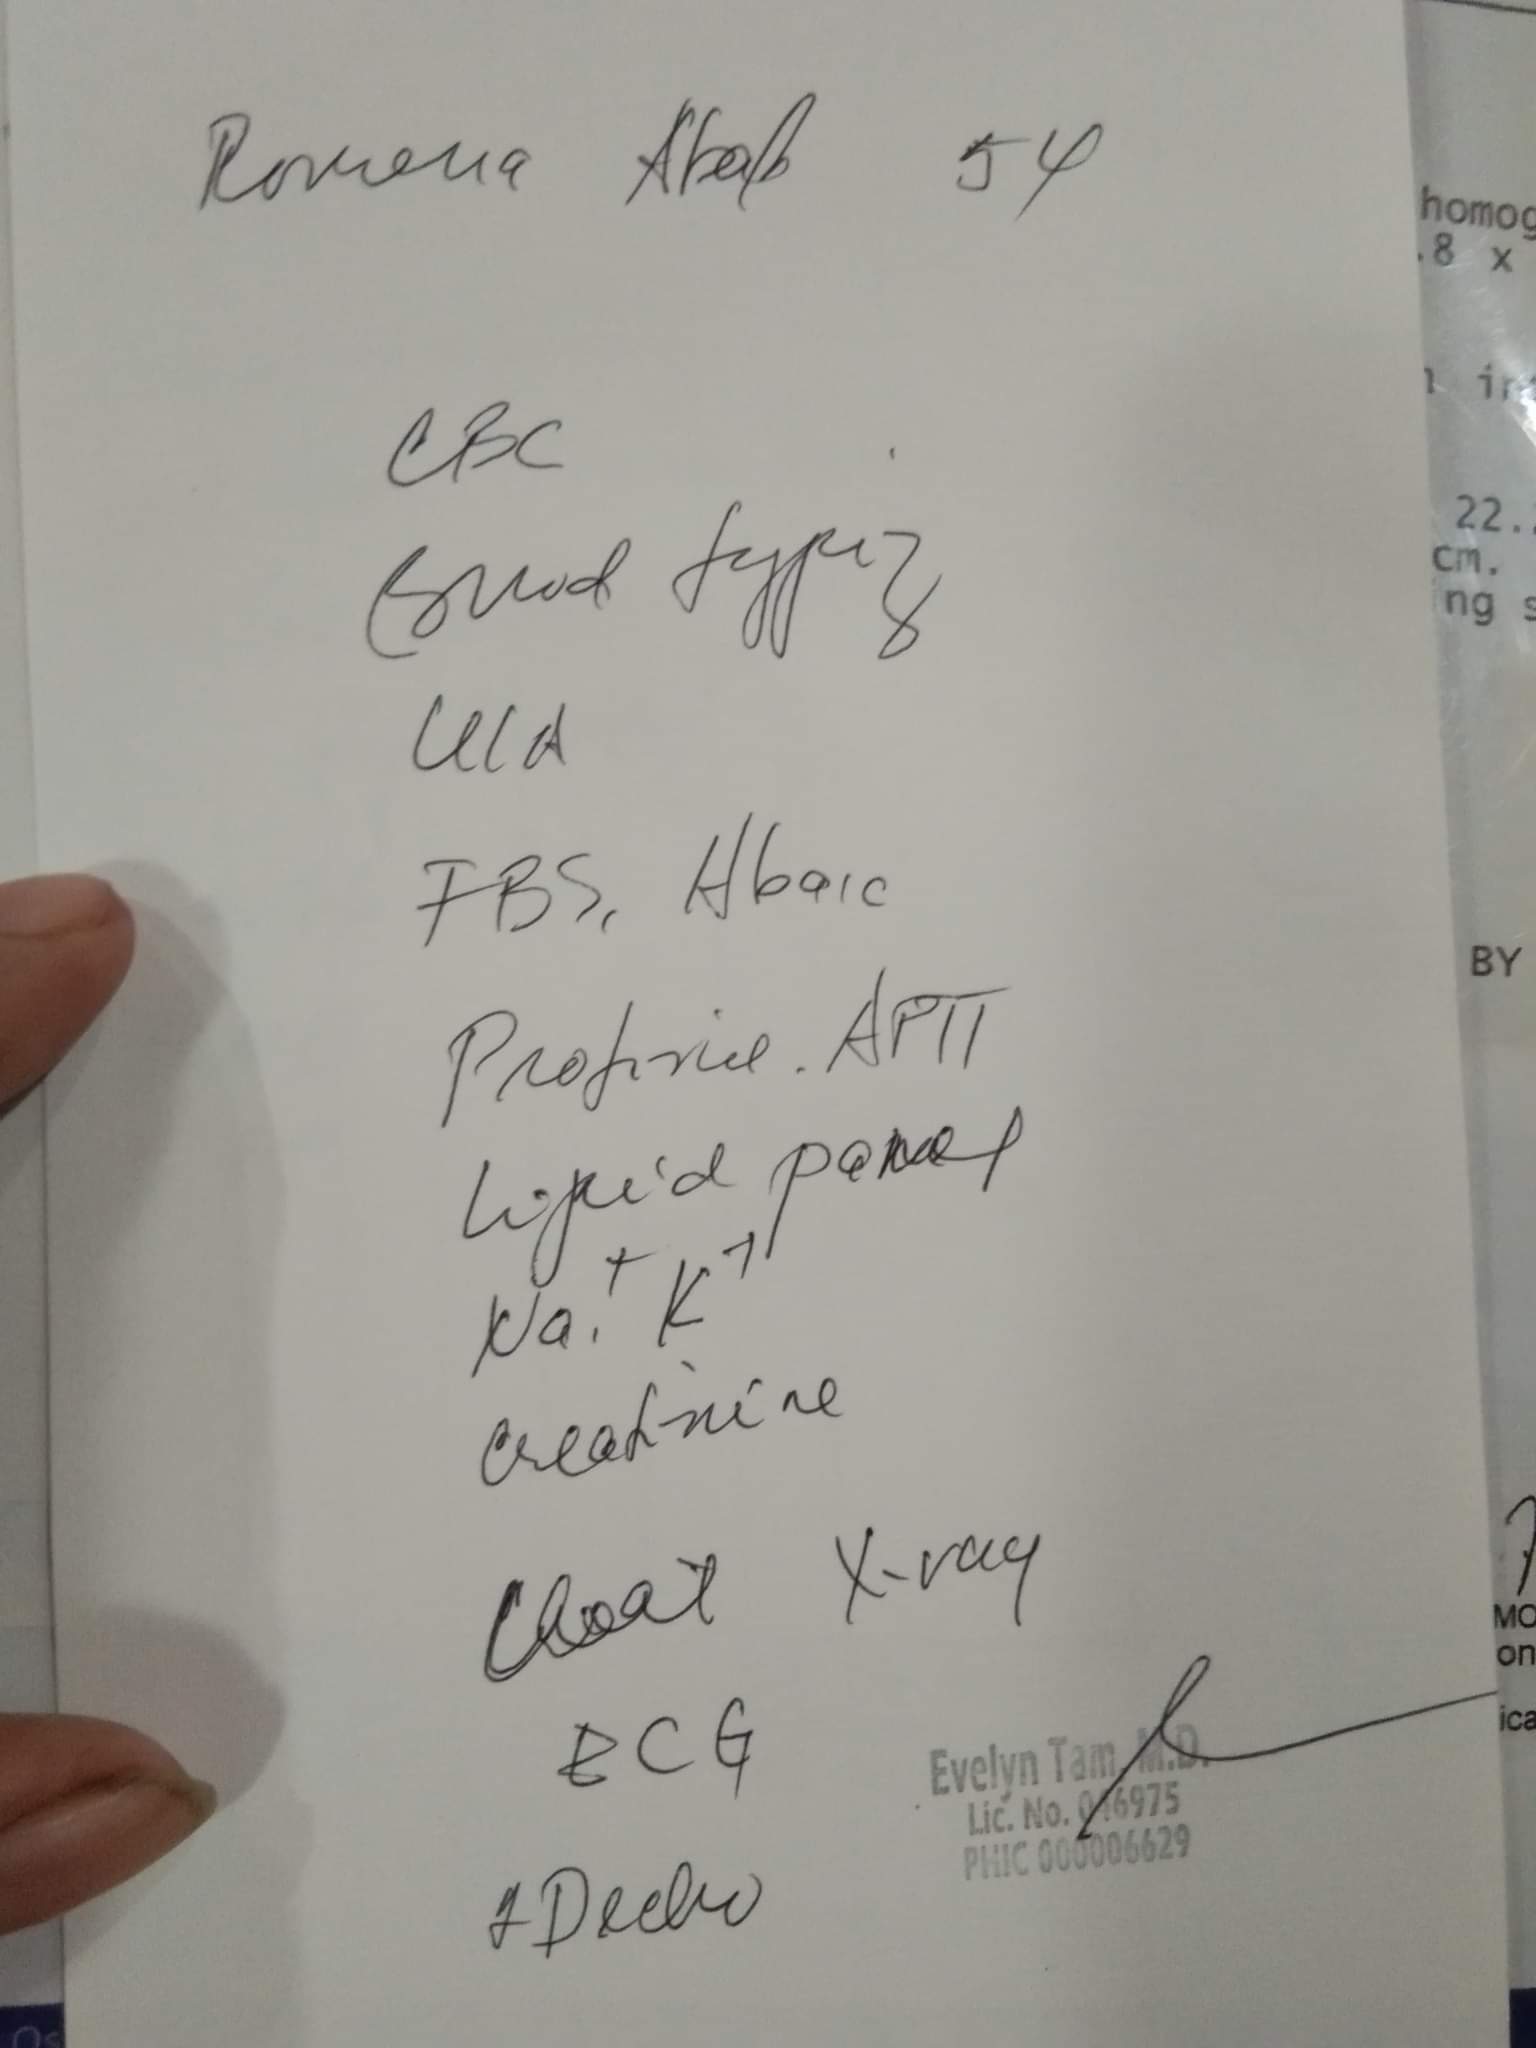 Romena Abab 54
CBC
Blood typing
U/A
FBS, Hba1c
Protime. APTT
Lipid panel
Na+, K+
creatinine
Chest X-ray
ECG
2Decho
Evelyn Tam, M.D.
Lic. No. 046975
PHIC 000006629
homog
.8 x
in
22.
cm.
ng s
BY
MO
on
ica
Os